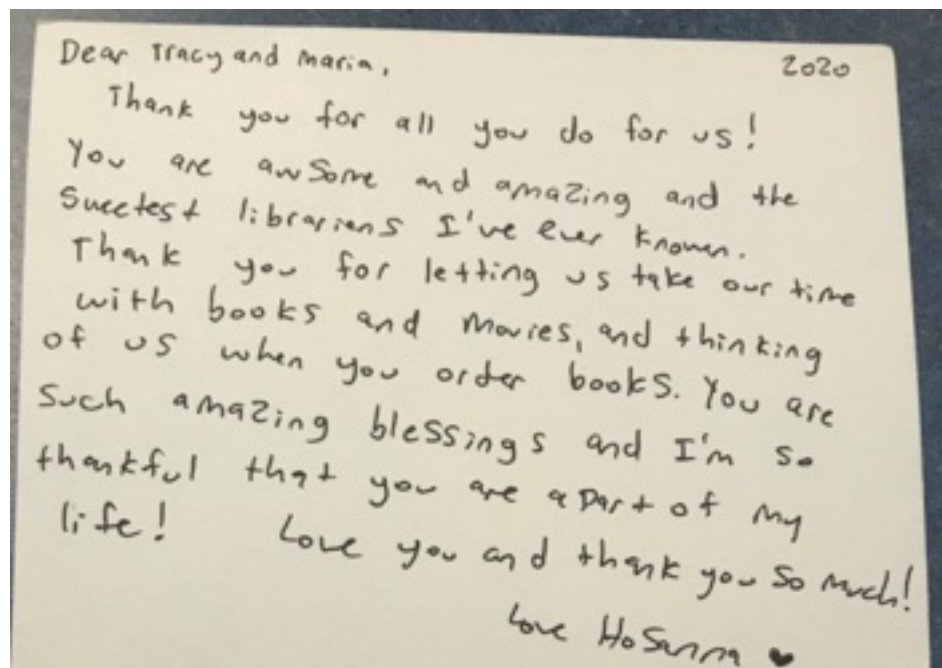 Dear Tracy and Maria, 2020
Thank you for all you do for us!
You are awSome and amazing and the
Sweetest librarians I've ever known.
Thank you for letting us take our time
with books and movies, and thinking
of us when you order books. You are
Such amazing blessings and I'm so
thankful that you are a part of my
life! Love you and thank you So much!
Love HoSanna ♥